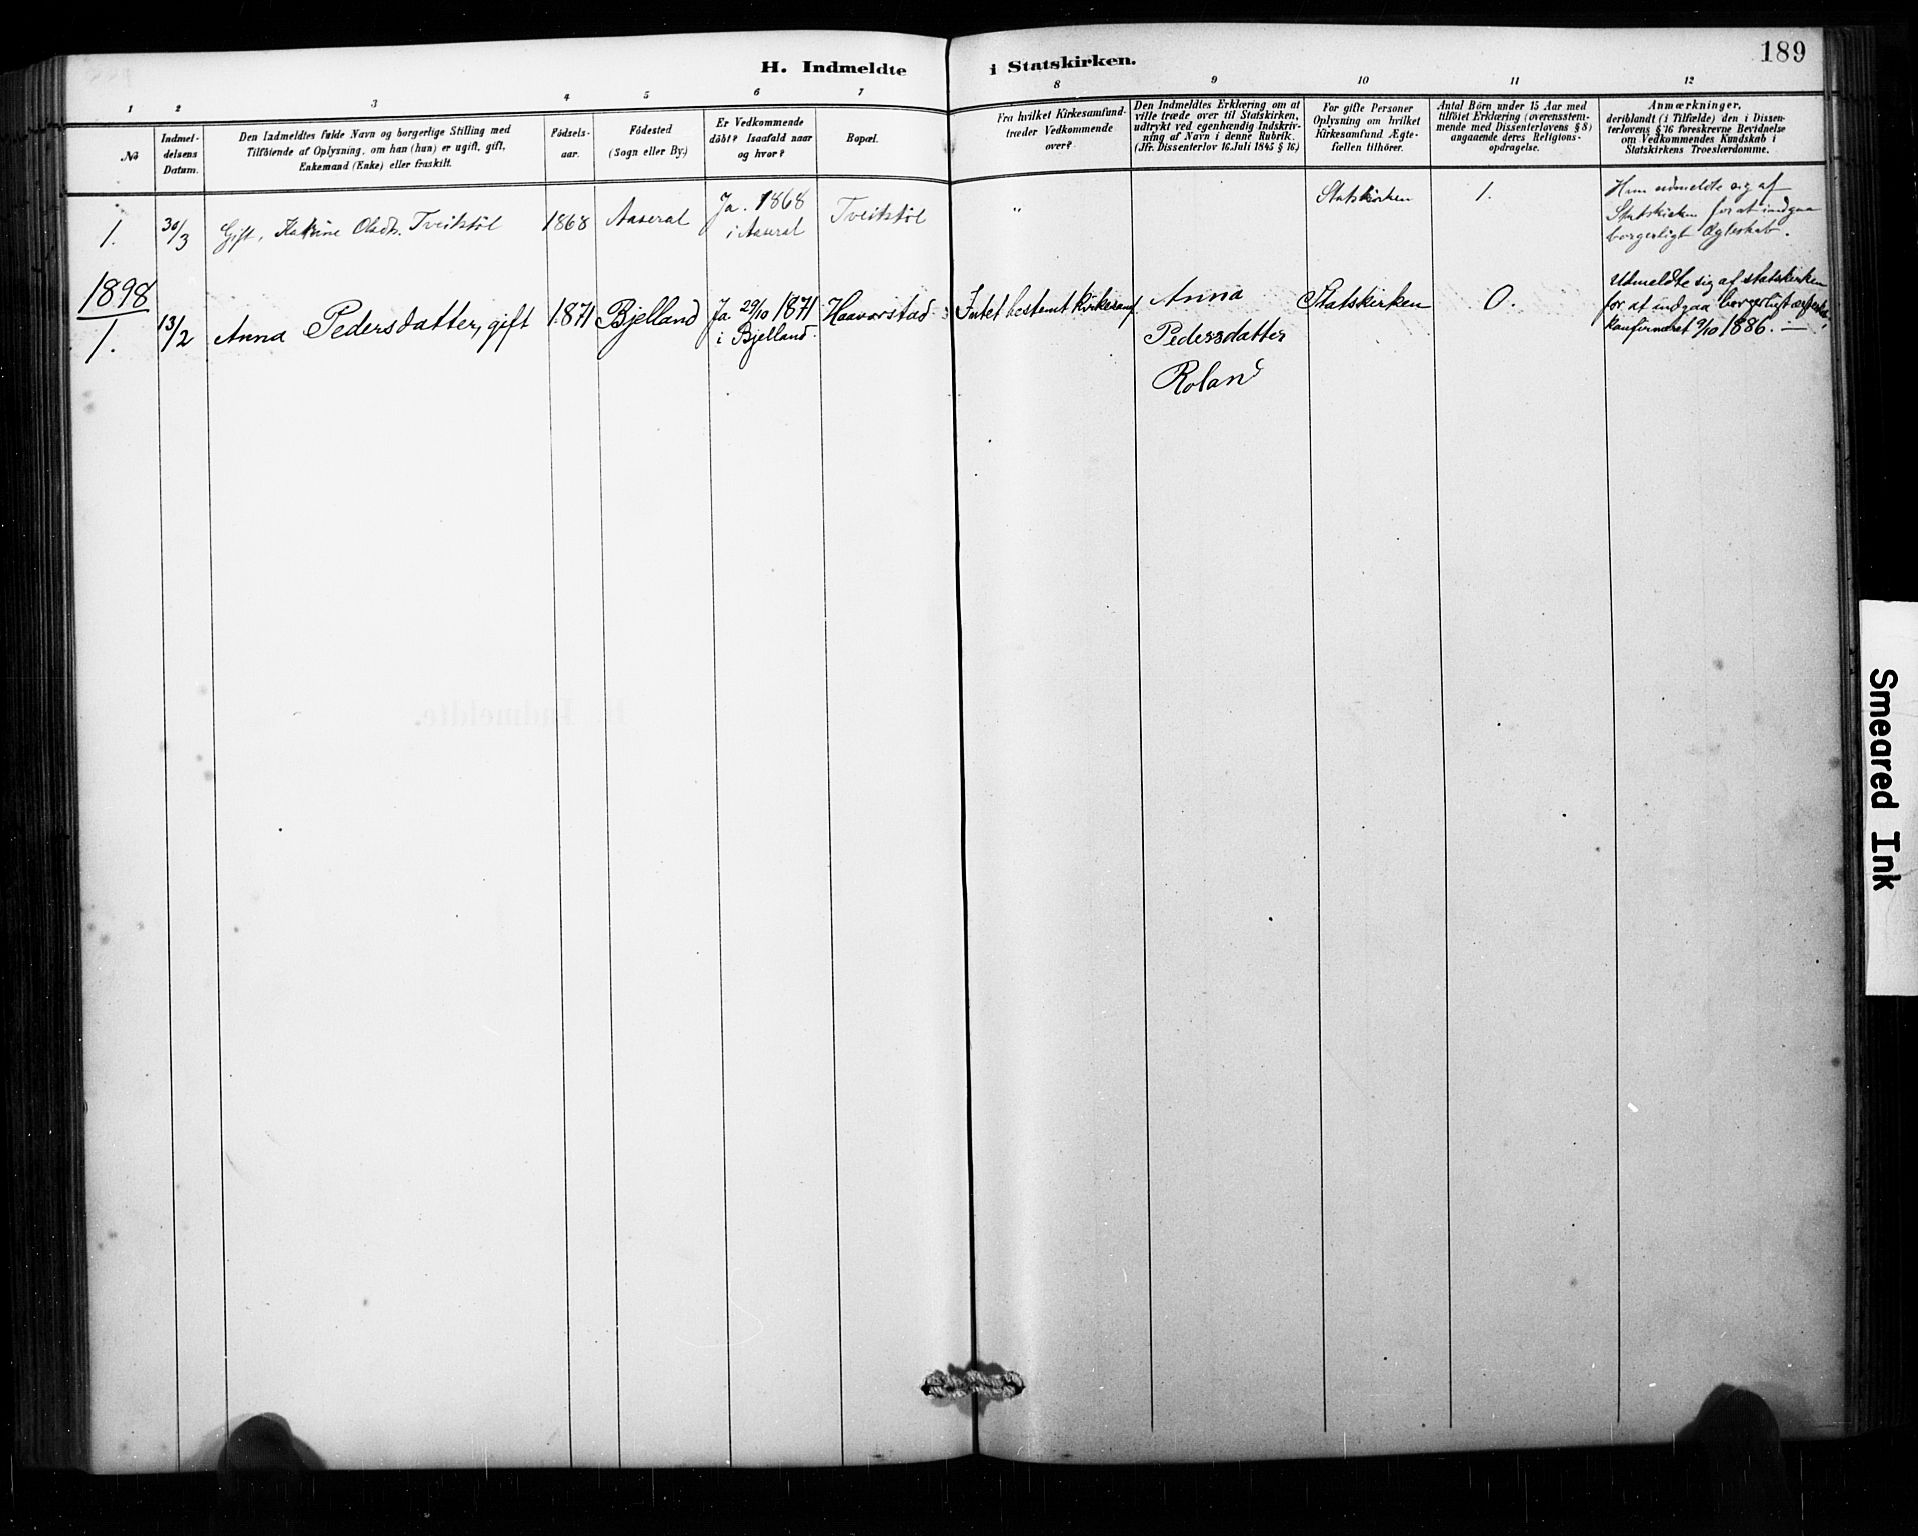 189
H. Indmeldte i Statskirken.
1 2 3 4 5 6 7 8 9 10 11 12
No
Indmel-
delsens
Datum.
Den Indmeldtes fulde Navn og borgerlige Stilling med
Tilföiende af Oplysning, om han (hun) er ugift, gift,
Enkemand (Enke) eller fraskilt.
Födsels-
aar.
Födested
(Sogn eller By.)
Er Vedkommende
döbt? Isaafald naar
og hvor?
Bopæl.
Fra hvilket Kirkesamfund
træder Vedkommende
over?
Den Indmeldtes Erklæring om at
ville træde over til Statskirken,
udtrykt ved egenhændig Indskriv-
ning af Navn i denne Rubrik.
(Jfr. Dissenterlov 16. Juli 1845 § 16.)
For gifte Personer
Oplysning om hvilket
Kirkesamfund Ægte-
fællen tilhörer.
Antal Börn under 15 Aar med
tilföiet Erklæring (overensstem-
mende med Dissenterlovens § 8)
angaaende deres Religions-
opdragelse.
Anmærkninger,
deriblandt (i Tilfælde) den i Dissen-
terlovens § 16 foreskrevne Bevidnelse
om Vedkommendes Kundskab i
Statskirkens Troeslærdomme.
1.
30/3
Gift, Katrine Olsdt. Tveitstöl
1868
Aaseral
Ja. 1868
i Aaseral
Tveitstöl
"
Statskirken
1.
Hun udmeldte sig af
Statskirken for at indgaa
borgerligt Ægteskab.
1898
1.
13/2
Anna Pedersdatter, gift
1871
Bjelland
Ja 29/10 1871
i Bjelland.
Haavorstad
Intet bestemt kirkesamf.
Anna
Pedersdatter
Roland
Statskirken
0.
Udmeldte sig af statskirken
for at indgaa borgerligt
konfirmeret 9/10 1886. —
Smeared Ink